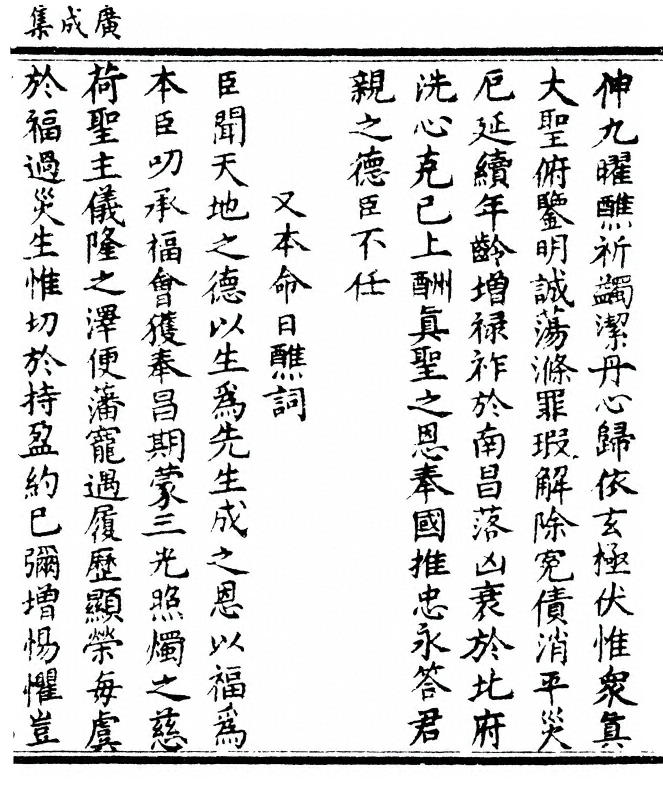 廣成集
伸九曜醮祈蠲潔丹心歸依玄極伏惟衆真
大聖俯鑒明誠蕩滌罪瑕解除冤債消平災
厄延續年齡增禄祚於南昌落凶衰於北府
洗心克已上酬真聖之恩奉國推忠永答君
親之德臣不任
又本命日醮詞
臣聞天地之德以生爲先生成之恩以福爲
本臣叨承福會獲奉昌期蒙三光照燭之慈
荷聖主儀隆之澤便藩寵遇履歷顯榮每虞
於福過災生惟切於持盈約已彌增惕懼豈